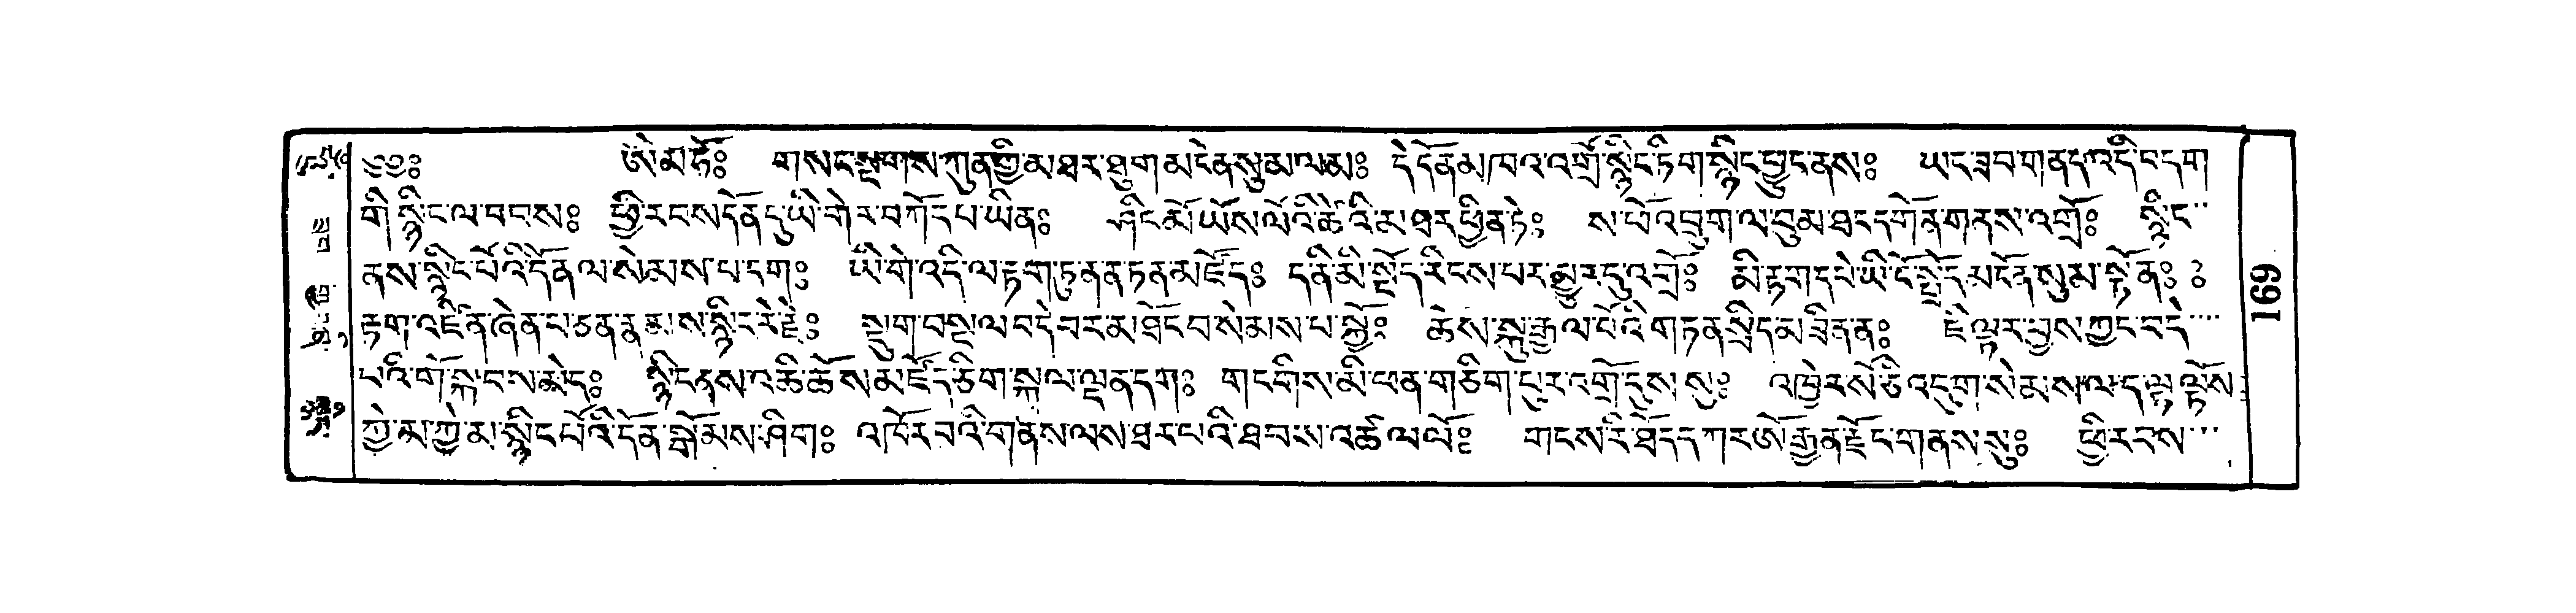 ༄༅༔ ཨེ་མ་ཧོ༔ གསང་སྔགས་ཀུན་གྱི་མ་ཐར་ཐུག་མངེན་སུམ་ལམ༔ དེ་དོན་མཁའ་འགྲོ་སྙིང་ཏིག་སྙིང་བྱུང་ནས༔ ཡང་ཟབ་གནད་འདི་དག
གི་སྙིང་ལ་བབས༔ ཕྱི་རབས་དོན་དུ་ཡི་གེར་བཀོད་པ་ཡིན༔ ཤིང་མོ་ཡོས་ལོའི་ཚེ་འི་མ་ཐར་ཕྱིན་ཏེ༔ ས་ཕོ་འབྲུག་ལ་བུམ་ཐང་དགོན་གནས་འགྲོ༔ སྙིང་
ནས་སྙིང་པོའི་དོན་ལ་སེམས་པ་དག༔ ཡི་གེ་འདི་ལ་རྟག་ཏུ་ནན་ཏན་མཛོད༔ ད་ནི་མི་སྡོད་རིངས་པར་མྱུར་དུ་འགྲོ༔ མི་རྟག་དཔེ་ཡི་ངོ་སྤྲོད་མངོན་སུམ་སྟོན༔
རྟག་འཛིན་ཞེན་པ་ཅན་རྣམས་སྙིང་རེ་རྗེ༔ སྡུག་བསྔལ་བདེ་བར་མ་ཐོང་བ་སེམས་པ་སྐྱོ༔ ཆེས་སྐུ་རྒྱལ་པོའི་གཏན་སྲིད་མ་ཟིན་ན༔ ཇི་ལྟར་བྱས་ཀྱང་བདེ
བའི་གོ་སྐབས་མེད༔ སྙིང་ནས་འཆི་ཆོས་མཛོད་ཅིག་སྐལ་ལྡན་དག༔ གང་གིས་མི་ཕན་གཅིག་པུར་འགྲོ་དུས་སུ༔ འཁྱེར་སོ་ཅི་འདུག་སེམས་ལ་ད་ལྟ་ལྟོས༔
ཀྱེ་མ་ཀྱེ་མ་སྙིང་པོའི་དོན་སྒོམས་ཤིག༔ འཁོར་བའི་གནས་ལས་ཐར་པའི་ཐབས་འཚལ་ལོ༔ གངས་རི་ཐོད་དཀར་ཨོ་རྒྱན་རྫོང་གནས་སུ༔ ཕྱི་རབས
169